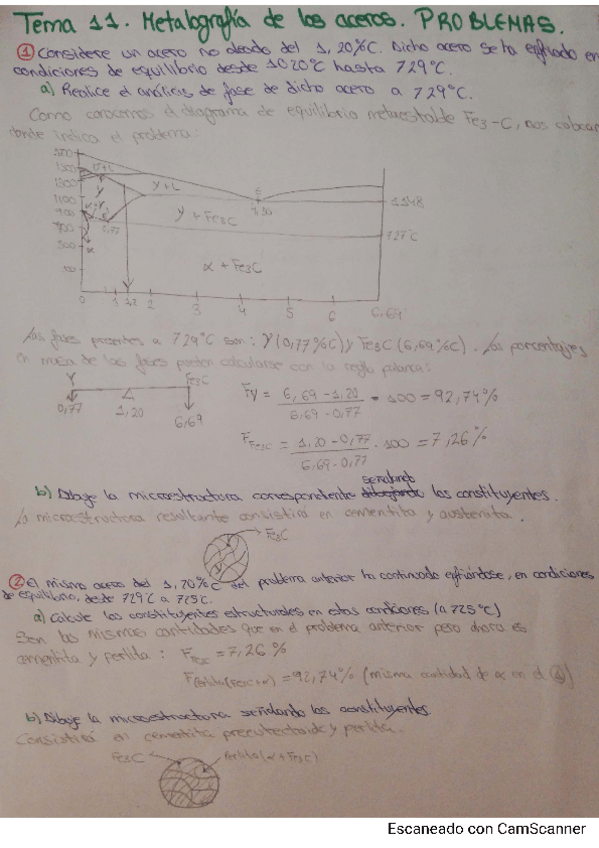 Tema 11. Metalografía de los aceros. PROBLEMAS.
① Considere un acero no aleado del 1,20%C. Dicho acero se ha enfriado en
condiciones de equilibrio desde 1020°C hasta 729°C.
a) Realice el análisis de fase de dicho acero a 729°C.
Como conocemos el diagrama de equilibrio metaestable Fe3-C, nos colocamos
donde indica el problema:
γ+L
γ + Fe3C
1148
0,77
727°C
α
α + Fe3C
0 1 1,2 2 3 4 5 6 6.69
Las fases presentes a 729°C son: γ(0,77%C) y Fe3C (6,69%C). Los porcentajes
en masa de las fases pueden calcularse con la regla palanca:
γ Fe3C
0,77 1,20 6,69
Fγ = 6,69-1,20 / 6,69-0,77 · 100 = 92,74%
F Fe3C = 1,20-0,77 / 6,69-0,77 · 100 = 7,26%
señalando
b) Dibuje la microestructura correspondiente los constituyentes.
La microestructura resultante consistirá en cementita y austenita.
Fe3C
γ
② El mismo acero del 1,20%C del problema anterior ha continuado enfriándose, en condiciones
de equilibrio, desde 729°C a 725°C.
a) Calcule los constituyentes estructurales en estas condiciones (a 725°C)
Son las mismas cantidades que en el problema anterior pero ahora es
cementita y perlita: F Fe3C = 7,26%
F Perlita(Fe3C+α) = 92,74% (misma cantidad de en el ①)
b) Dibuje la microestructura señalando los constituyentes.
Consistirá en cementita proeutectoide y perlita.
Fe3C Perlita (α+Fe3C)
Escaneado con CamScanner